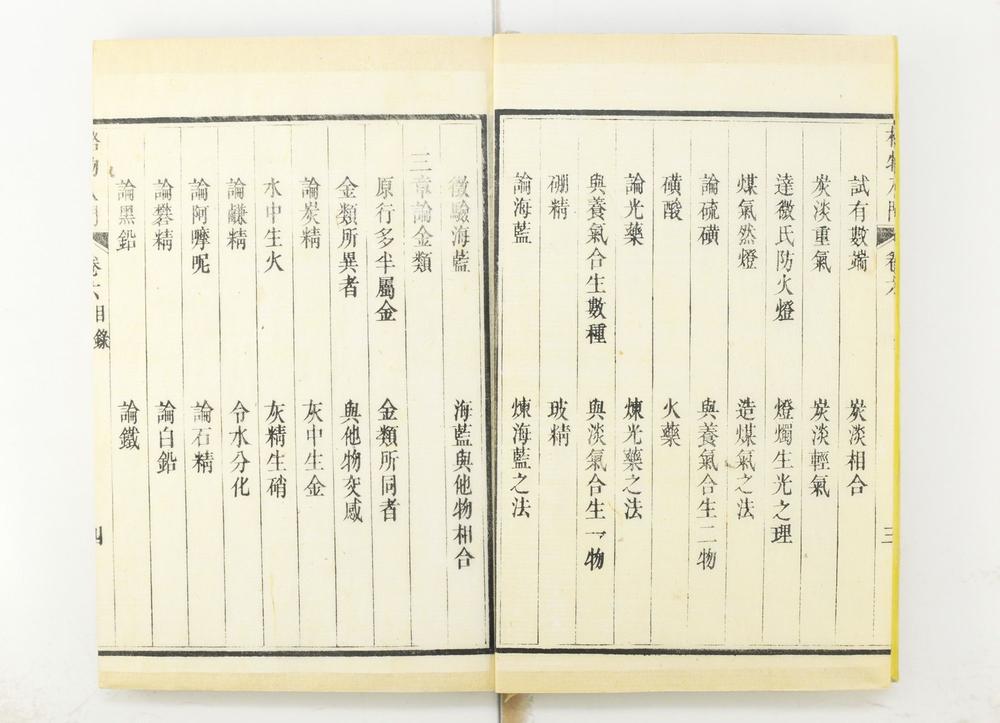 試有數端 炭淡相合
炭淡重氣 炭淡輕氣
達微氏防火燈 燈燭生光之理
煤氣然燈 造煤氣之法
論硫磺 與養氣合生二物
磺酸 火藥
論光藥 煉光藥之法
與養氣合生數種 與淡氣合生一物
硼精 玻精
論海藍 煉海藍之法
三
徵驗海藍 海藍與他物相合
三章論金類
原行多半屬金 金類所同者
金類所異者 與他物交感
論炭精 灰中生金
水中生火 灰精生硝
論鹻精 令水分化
論阿嚤呢 論石精
論礬精 論白鉛
論黑鉛 論鐵
卷六目錄
四